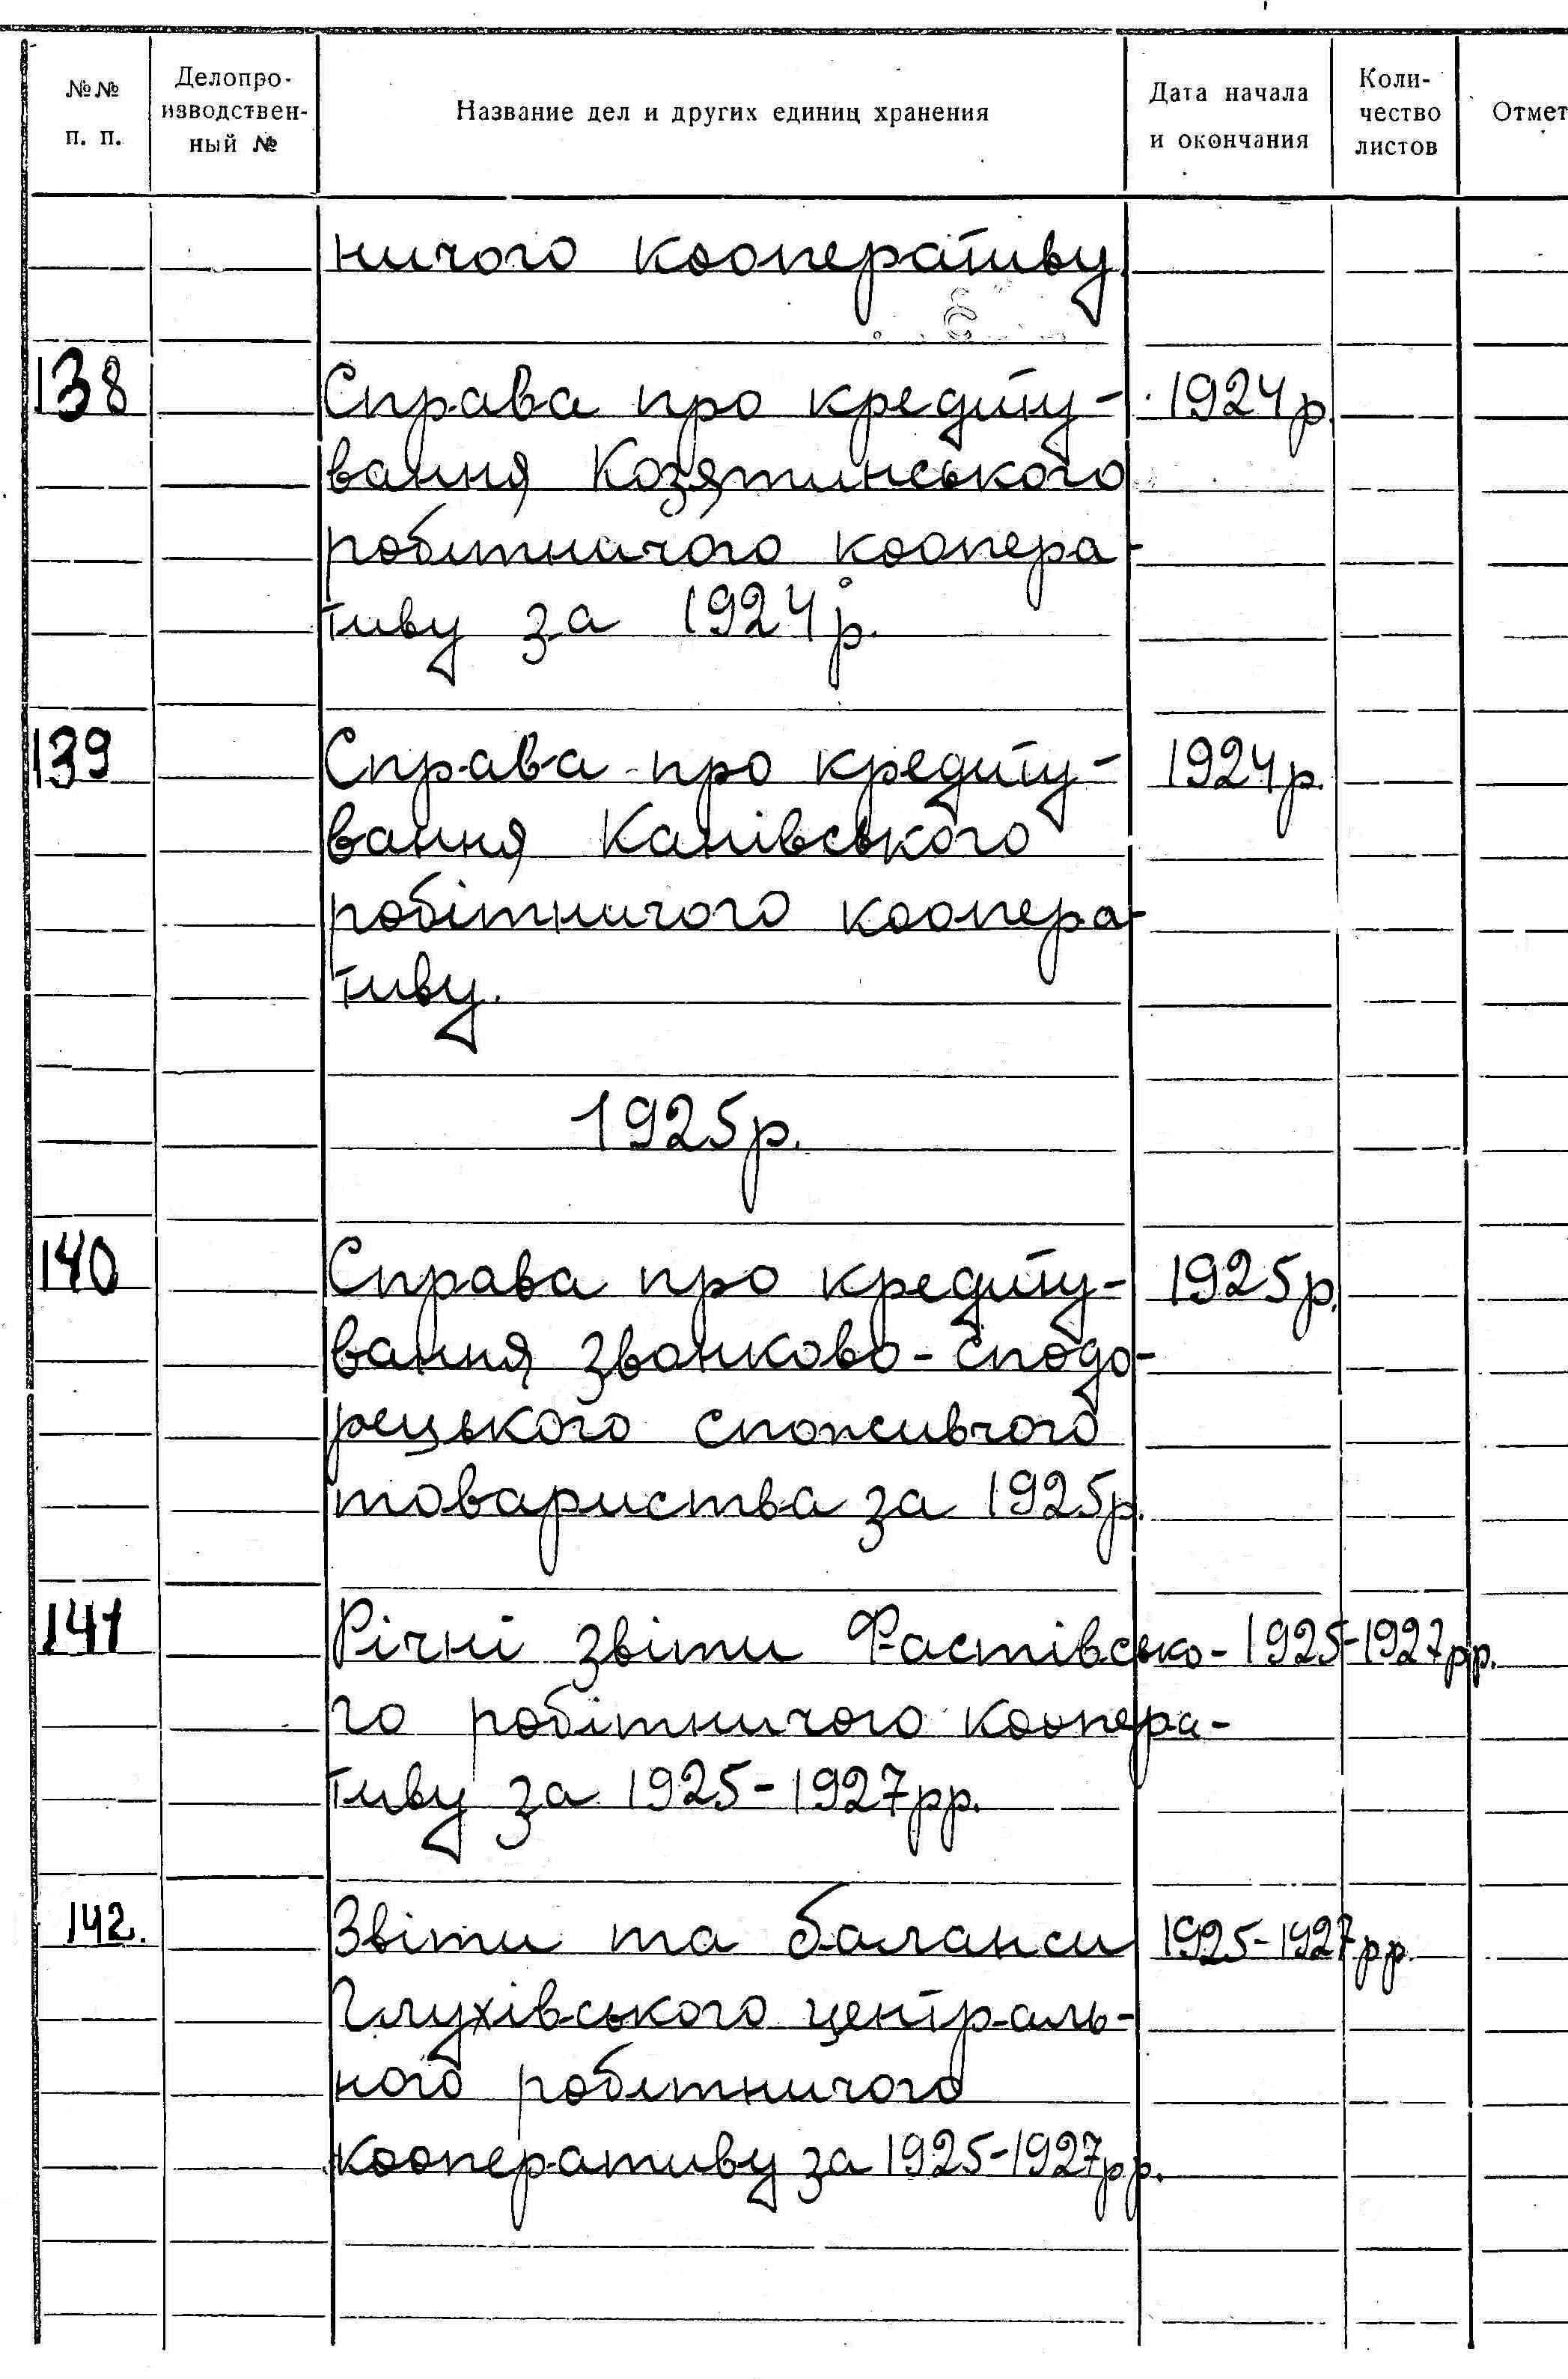 №№ п. п.
Делопро-
изводствен-
ный №
Название дел и других единиц хранения
Дата начала
и окончания
Коли-
чество
листов
Отмет
ничого кооперативу.
138 Справа про кредиту- 1924р.
вання Козятинського
робітничого коопера-
тиву за 1924р.
139 Справа про кредиту- 1924р.
вання Канівського
робітничого коопера-
тиву.
1925р.
140 Справа про кредиту- 1925р.
вання Званково-Сподо-
рецького споживчого
товариства за 1925р.
141 Річні звіти Фастівсько- 1925-1927рр.
го робітничого коопера-
тиву за 1925-1927рр.
142. Звіти та баланси 1925-1927рр.
Глухівського централь-
ного робітничого
кооперативу за 1925-1927рр.